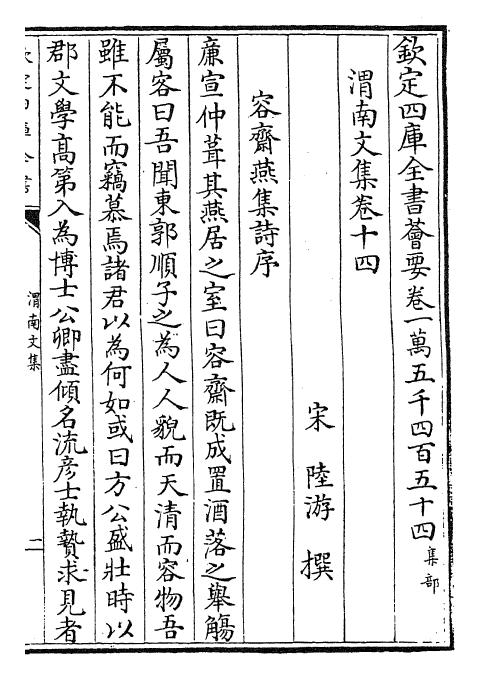 欽定四庫全書薈要卷一萬五千四百五十四集部
渭南文集卷十四
宋陸游撰
容齋燕集詩序
亷宣仲葺其燕居之室曰容齋既成置酒落之舉觴
屬客曰吾聞東郭順子之為人人貌而天清而容物吾
雖不能而竊慕焉諸君以為何如或曰方公盛壯時以
郡文學髙第入為博士公卿盡傾名流彥士執贄求見者
渭南文集
二